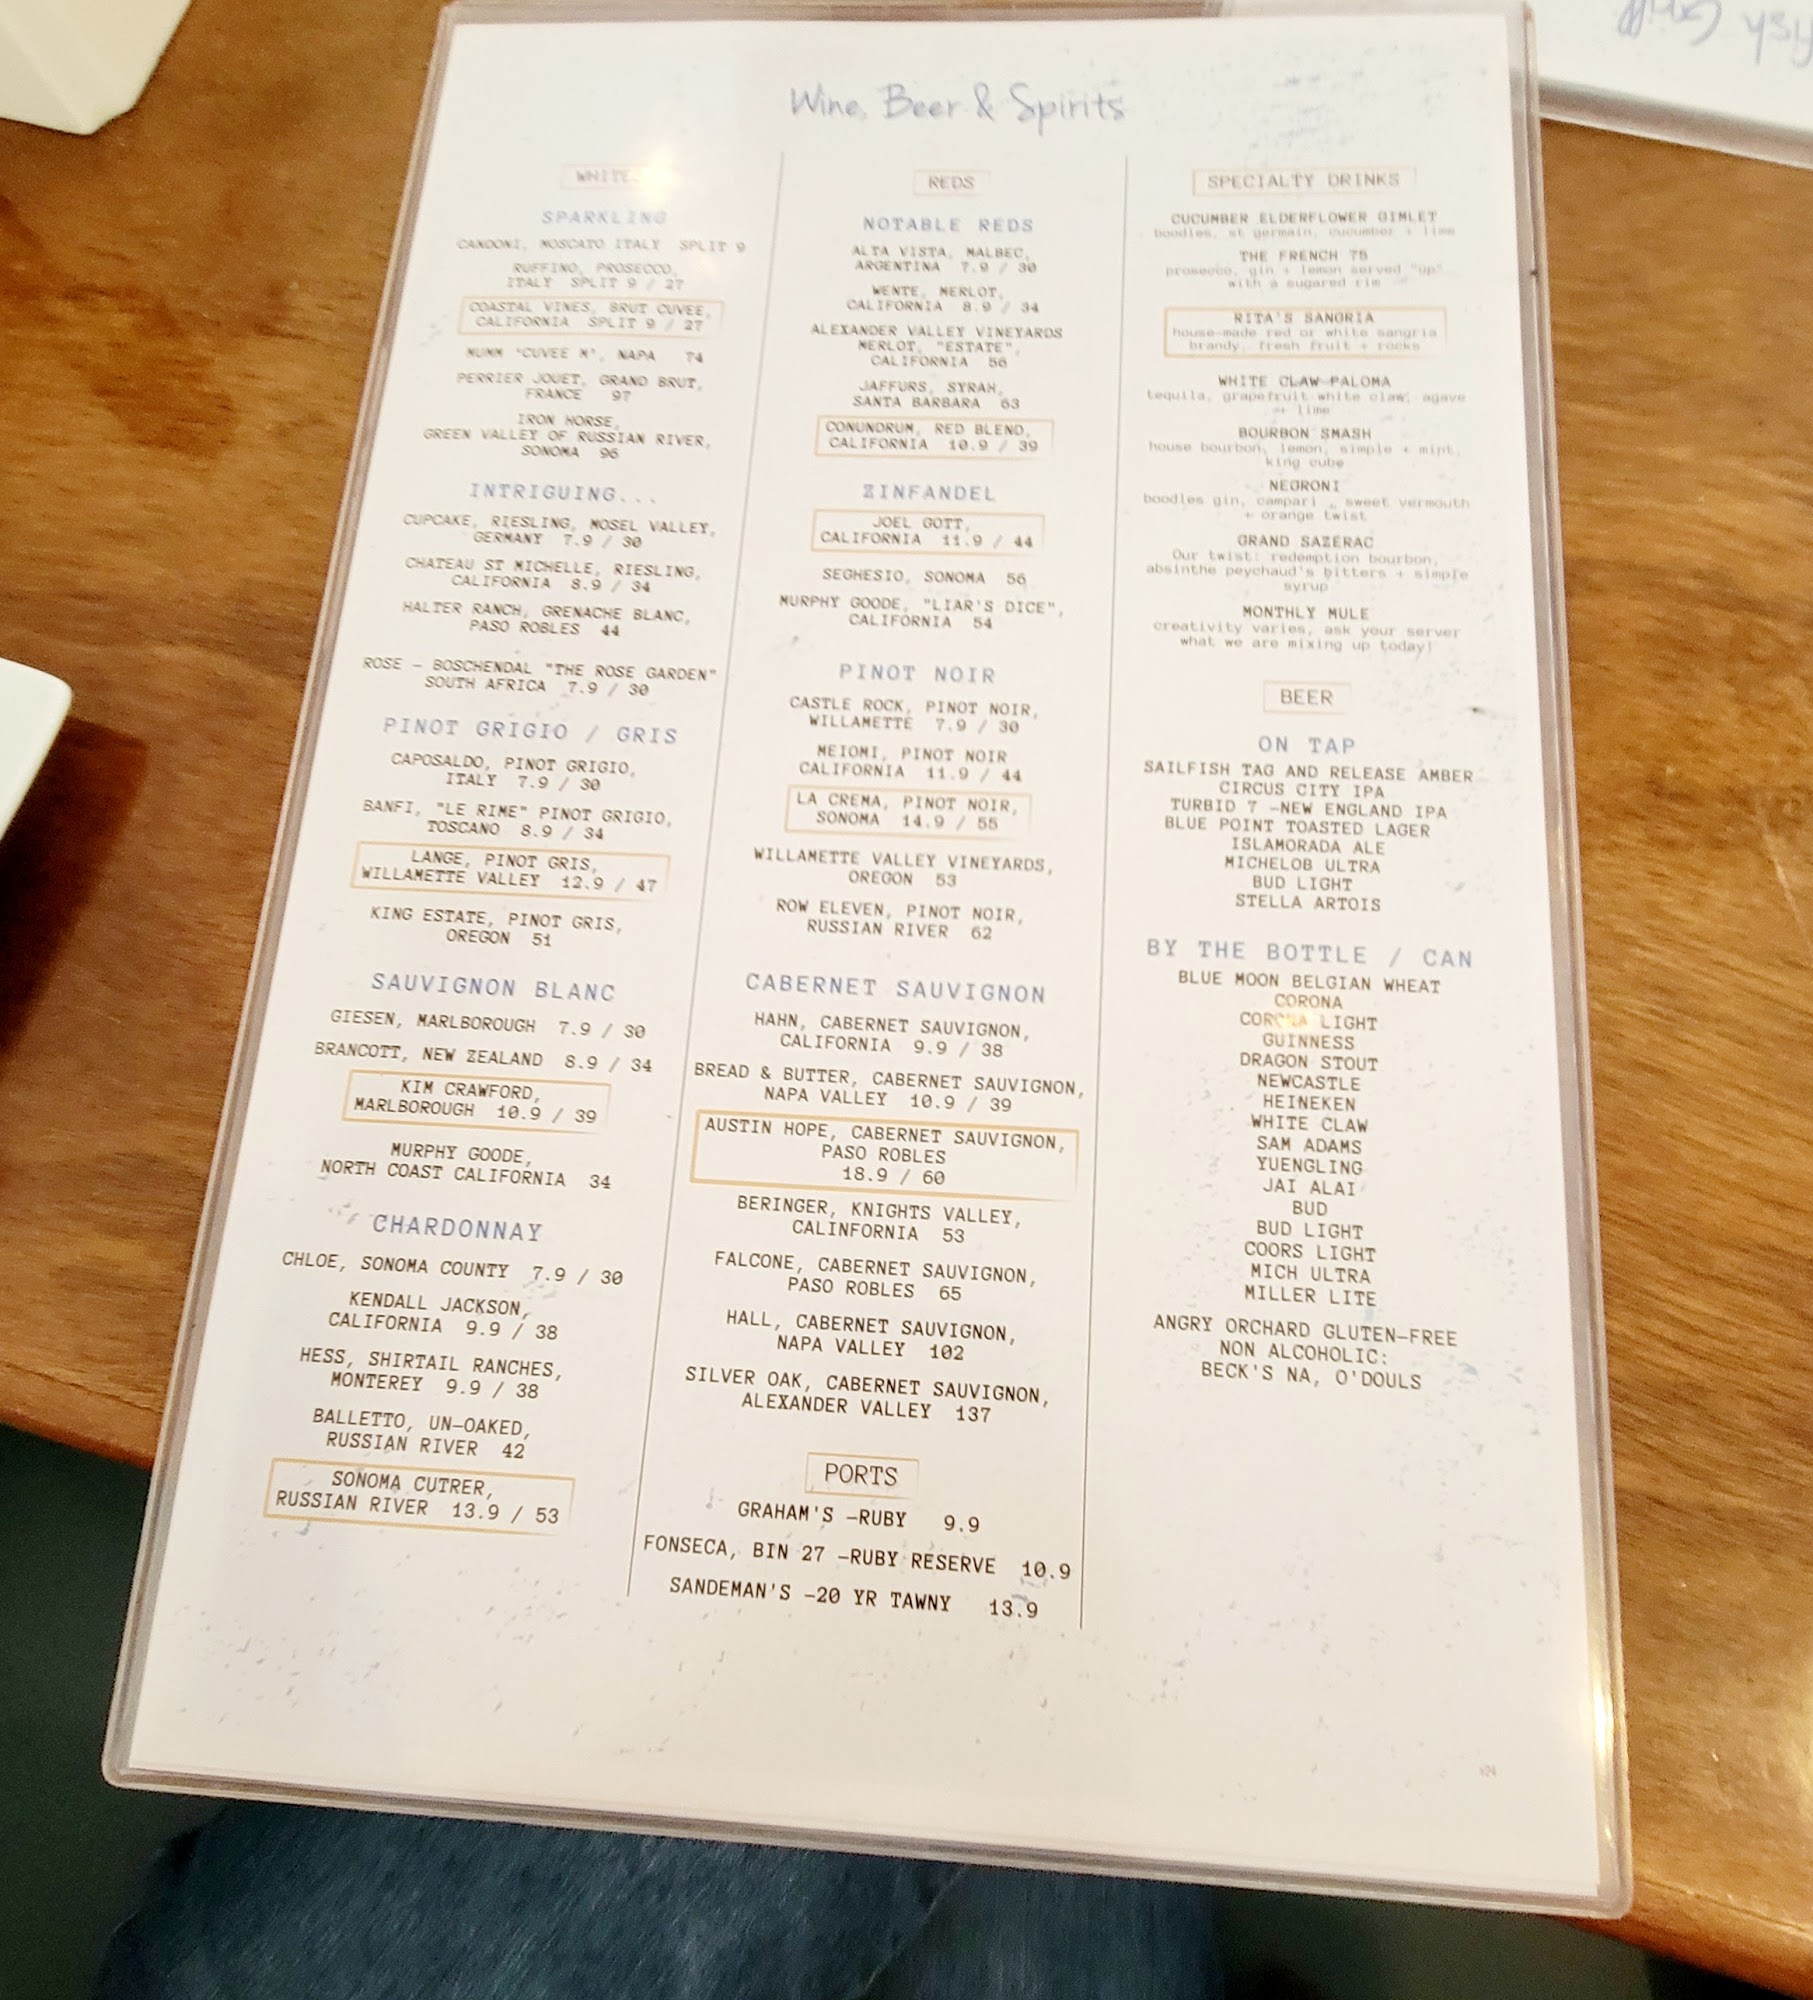 Wine, Beer & Spirits
WHITE
SPARKLING
CANDONI, MOSCATO ITALY SPLIT 9
RUFFINO, PROSECCO,
ITALY SPLIT 9 / 27
COASTAL VINES, BRUT CUVEE,
CALIFORNIA SPLIT 9 / 27
MUMM "CUVEE M", NAPA 74
PERRIER JOUET, GRAND BRUT,
FRANCE 97
IRON HORSE,
GREEN VALLEY OF RUSSIAN RIVER,
SONOMA 96
INTRIGUING...
CUPCAKE, RIESLING, MOSEL VALLEY,
GERMANY 7.9 / 30
CHATEAU ST MICHELLE, RIESLING,
CALIFORNIA 8.9 / 34
HALTER RANCH, GRENACHE BLANC,
PASO ROBLES 44
ROSE – BOSCHENDAL "THE ROSE GARDEN"
SOUTH AFRICA 7.9 / 30
PINOT GRIGIO / GRIS
CAPOSALDO, PINOT GRIGIO,
ITALY 7.9 / 30
BANFI, "LE RIME" PINOT GRIGIO,
TOSCANO 8.9 / 34
LANGE, PINOT GRIS,
WILLAMETTE VALLEY 12.9 / 47
KING ESTATE, PINOT GRIS,
OREGON 51
SAUVIGNON BLANC
GIESEN, MARLBOROUGH 7.9 / 30
BRANCOTT, NEW ZEALAND 8.9 / 34
KIM CRAWFORD,
MARLBOROUGH 10.9 / 39
MURPHY GOODE,
NORTH COAST CALIFORNIA 34
CHARDONNAY
CHLOE, SONOMA COUNTY 7.9 / 30
KENDALL JACKSON,
CALIFORNIA 9.9 / 38
HESS, SHIRTAIL RANCHES,
MONTEREY 9.9 / 38
BALLETTO, UN–OAKED,
RUSSIAN RIVER 42
SONOMA CUTRER,
RUSSIAN RIVER 13.9 / 53
REDS
NOTABLE REDS
ALTA VISTA, MALBEC,
ARGENTINA 7.9 / 30
WENTE, MERLOT,
CALIFORNIA 8.9 / 34
ALEXANDER VALLEY VINEYARDS
MERLOT, "ESTATE",
CALIFORNIA 56
JAFFURS, SYRAH,
SANTA BARBARA 63
CONUNDRUM, RED BLEND,
CALIFORNIA 10.9 / 39
ZINFANDEL
JOEL GOTT,
CALIFORNIA 11.9 / 44
SEGHESIO, SONOMA 56
MURPHY GOODE, "LIAR'S DICE",
CALIFORNIA 54
PINOT NOIR
CASTLE ROCK, PINOT NOIR,
WILLAMETTE 7.9 / 30
MEIOMI, PINOT NOIR
CALIFORNIA 11.9 / 44
LA CREMA, PINOT NOIR,
SONOMA 14.9 / 55
WILLAMETTE VALLEY VINEYARDS,
OREGON 53
ROW ELEVEN, PINOT NOIR,
RUSSIAN RIVER 62
CABERNET SAUVIGNON
HAHN, CABERNET SAUVIGNON,
CALIFORNIA 9.9 / 38
BREAD & BUTTER, CABERNET SAUVIGNON,
NAPA VALLEY 10.9 / 39
AUSTIN HOPE, CABERNET SAUVIGNON,
PASO ROBLES
18.9 / 60
BERINGER, KNIGHTS VALLEY,
CALINFORNIA 53
FALCONE, CABERNET SAUVIGNON,
PASO ROBLES 65
HALL, CABERNET SAUVIGNON,
NAPA VALLEY 102
SILVER OAK, CABERNET SAUVIGNON,
ALEXANDER VALLEY 137
PORTS
GRAHAM'S –RUBY 9.9
FONSECA, BIN 27 –RUBY RESERVE 10.9
SANDEMAN'S –20 YR TAWNY 13.9
SPECIALTY DRINKS
CUCUMBER ELDERFLOWER GIMLET
boodles, st germain, cucumber + lime
THE FRENCH 75
prosecco, gin + lemon served "up"
with a sugared rim
RITA'S SANGRIA
house–made red or white sangria
brandy, fresh fruit + rocks
WHITE CLAW–PALOMA
tequila, grapefruit white claw, agave
+ lime
BOURBON SMASH
house bourbon, lemon, simple + mint,
king cube
NEGRONI
boodles gin, campari , sweet vermouth
+ orange twist
GRAND SAZERAC
Our twist: redemption bourbon,
absinthe peychaud's bitters + simple
syrup
MONTHLY MULE
creativity varies, ask your server
what we are mixing up today!
BEER
ON TAP
SAILFISH TAG AND RELEASE AMBER
CIRCUS CITY IPA
TURBID 7 –NEW ENGLAND IPA
BLUE POINT TOASTED LAGER
ISLAMORADA ALE
MICHELOB ULTRA
BUD LIGHT
STELLA ARTOIS
BY THE BOTTLE / CAN
BLUE MOON BELGIAN WHEAT
CORONA
CORONA LIGHT
GUINNESS
DRAGON STOUT
NEWCASTLE
HEINEKEN
WHITE CLAW
SAM ADAMS
YUENGLING
JAI ALAI
BUD
BUD LIGHT
COORS LIGHT
MICH ULTRA
MILLER LITE
ANGRY ORCHARD GLUTEN–FREE
NON ALCOHOLIC:
BECK'S NA, O'DOULS